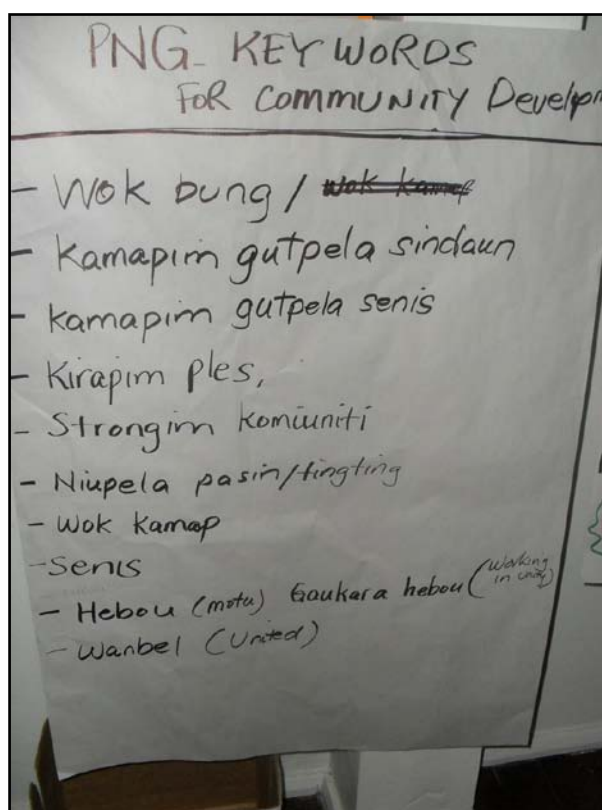 PNG- KEY WORDS
FOR COMMUNITY Develpm
- Wok bung / wok kamap
- Kamapim gutpela sindaun
- kamapim gutpela senis
- Kirapim ples,
- Strongim komiuniti
- Niupela pasin/tingting
- Wok kamap
- Senis
- Hebou (motu) Gaukara hebou (working in unity)
- Wanbel (United)